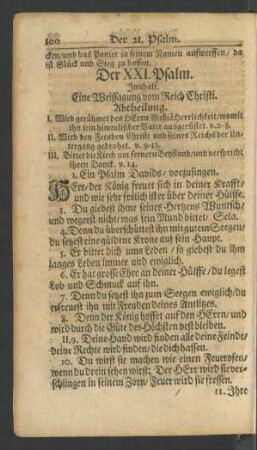 100 Der 21. Psalm.
cken/und das Panier in seinem Namen auffwerffen/ da
ist Glück und Sieg zu hoffen.
Der XXI. Psalm.
Innhalt.
Eine Weissagung vom Reich Christi.
Abtheilung.
I. Wird gerühmet des HErrn Messiä Herrlichkeit/womit
ihn sein himmlischer Vater ausgerüstet. v.2-8.
II. Wird den Feinden Christi und seines Reichs der Un-
tergang gedrohet. v. 9-13.
III. Bittet die Kirch um fernern Beystand/und verspricht
ihren Danck. v. 14.
1. Ein Psalm Davids/ vorzusingen.
HErr/ der König freuet sich in deiner Krafft/
und wie sehr frölich ist er über deiner Hülffe.
3. Du giebest ihme seines Hertzens Wunsch/
und wegerst nichts/was sein Mund bittet/ Sela.
4. Denn du überschüttest ihn mit gutem Seegen/
du setzest eine güldene Krone auf sein Haupt.
5. Er bittet dich ums Leben/ so giebest du ihm
langes Leben immer und ewiglich.
6. Er hat grosse Ehre an deiner Hülffe/ du legest
Lob und Schmuck auf ihn.
7. Denn du setzest ihn zum Seegen ewiglich/du
erfreuest ihn mit Freuden deines Antlitzes.
8. Denn der König hoffet auf den HErrn/ und
wird durch die Güte des Höchsten vest bleiben.
II. 9. Deine Hand wird finden alle deine Feinde/
deine Rechte wird finden/die dich hassen.
10. Du wirst sie machen wie einen Feuerofen/
wenn du drein sehen wirst; Der HErr wird sie ver-
schlingen in seinem Zorn/ Feuer wird sie fressen.
11. Ihre